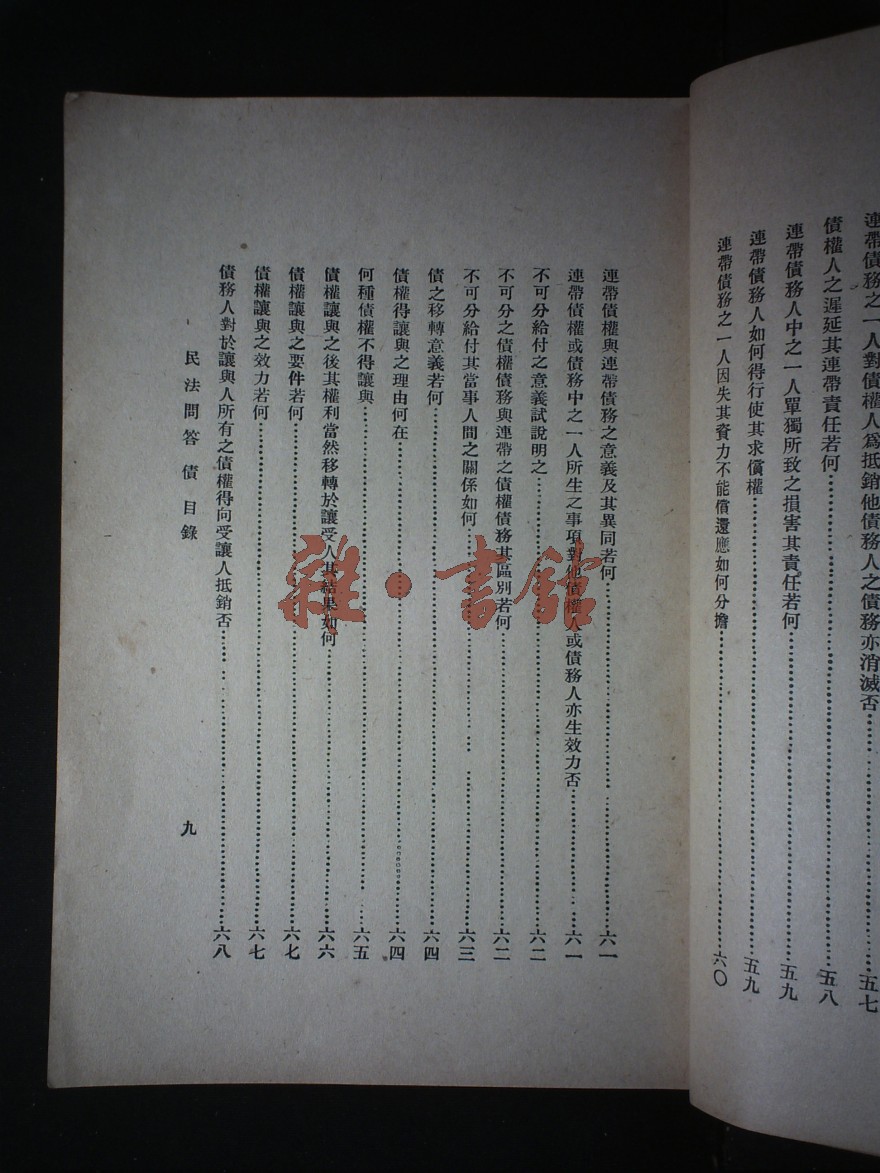 連帶債務之一人對債權人爲抵銷他債務人之債務亦消滅否……五七
債權人之遲延其連帶責任若何……五八
連帶債務人中之一人單獨所致之損害其責任若何……五九
連帶債務人如何得行使其求償權……五九
連帶債務之一人因失其資力不能償還應如何分擔……六〇
連帶債權與連帶債務之意義及其異同若何……六一
連帶債權或債務中之一人所生之事項對他債權人或債務人亦生效力否……六一
不可分給付之意義試說明之……六二
不可分之債權債務與連帶之債權債務其區別若何……六二
不可分給付其當事人間之關係如何……六三
債之移轉意義若何……六四
債權得讓與之理由何在……六四
何種債權不得讓與……六五
債權讓與之後其權利當然移轉於讓受人其結果如何……六六
債權讓與之要件若何……六七
債權讓與之效力若何……六七
債務人對於讓與人所有之債權得向受讓人抵銷否……六八
民法問答 債 目錄
九
雜·書館